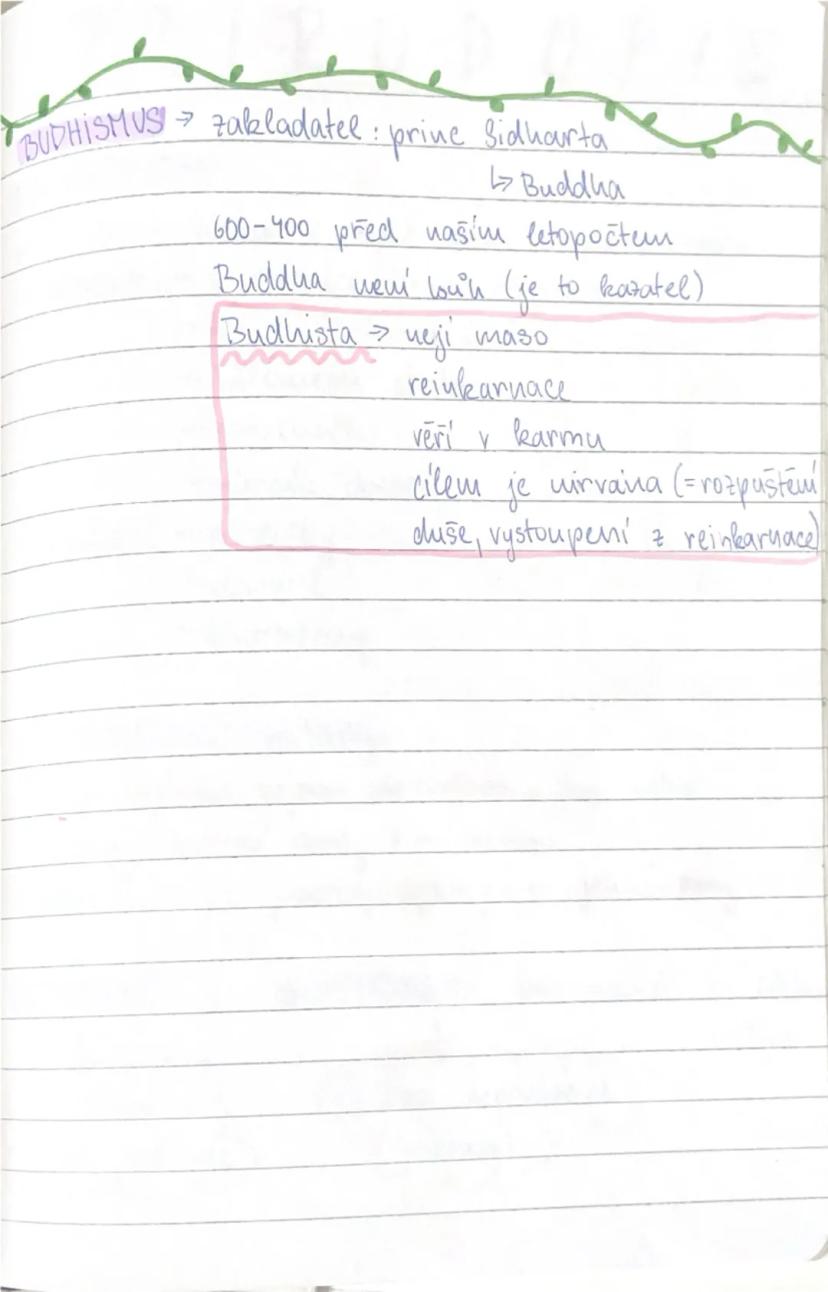 BUDHISMUS → zakladatel: princ Sidharta
↳ Buddha
600-400 před naším letopočtem
Buddha není bůh (je to kazatel)
Budhista → nejí maso
reinkarnace
věří v karmu
cílem je nirvána (=rozpuštění
duše, vystoupení z reinkarnace)